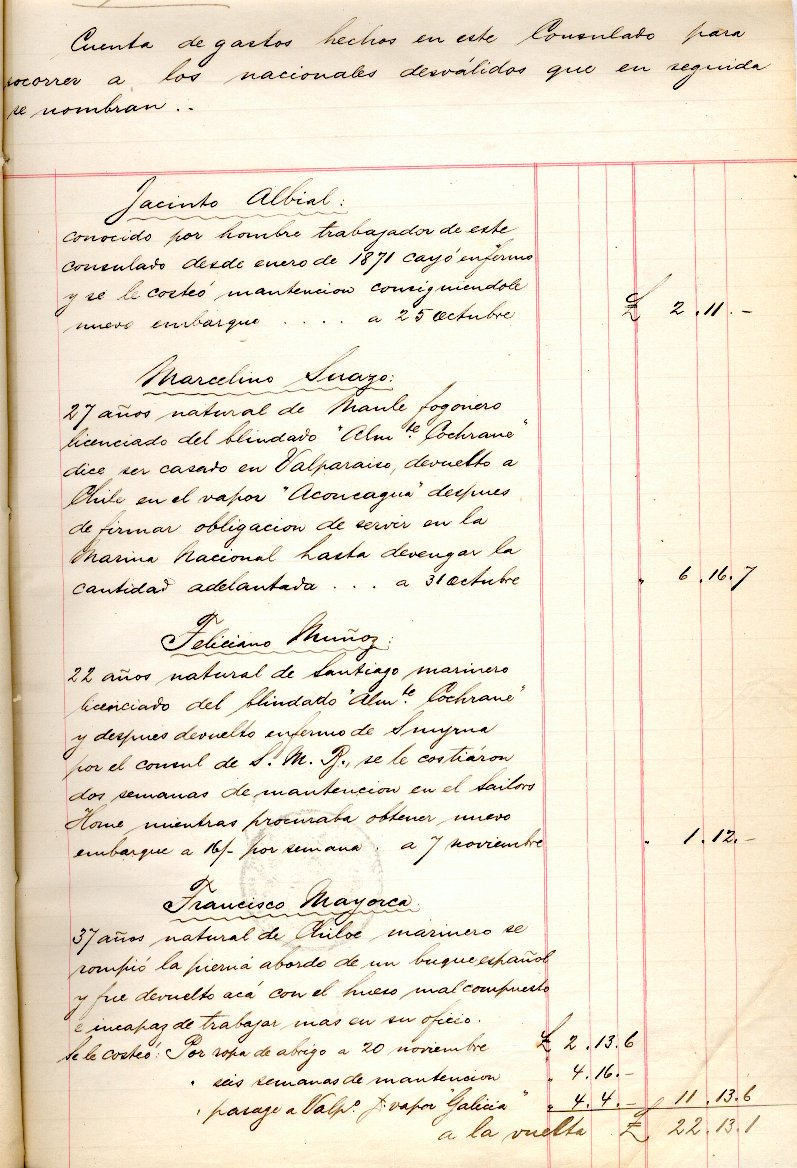 Cuenta de gastos hechos en este Consulado para
socorrer a los nacionales desválidos que en seguida
se nombran..
Jacinto Albial:
conocido por hombre trabajador de este
consulado desde enero de 1871 cayó enfermo
y se le costeó mantencion consiguiéndole
nuevo embarque . . . . a 25 Octubre £ 2.11.-
Marcelino Suazo:
27 años natural de Maule fogonero
licenciado del blindado "Almte. Cochrane"
dice ser casado en Valparaiso, devuelto a
Chile en el vapor "Aconcagua" despues
de firmar obligacion de servir en la
Marina Nacional hasta devengar la
cantidad adelantada . . . a 31 Octubre " 6.16.7
Feliciano Muñoz:
22 años natural de Santiago marinero
licenciado del blindado "Almte. Cochrane"
y despues devuelto enfermo de Smyrna
por el consul de S. M. B., se le costiáron
dos semanas de mantencion en el Sailors
Home mientras procuraba obtener nuevo
embarque a 16/- por semana . a 7 noviembre " 1.12.-
Francisco Mayorca.
37 años natural de Chiloe marinero se
rompió la pierna abordo de un buque español
y fue devuelto acá con el hueso mal compuesto
é incapaz de trabajar mas en su oficio.
Se le costeó: Por ropa de abrigo a 20 noviembre £ 2.13.6
" seis semanas de mantencion " 4.16.-
" pasage a Valpo. vapor "Galicia" " 4.4.- " 11.13.6
a la vuelta £ 22.13.1